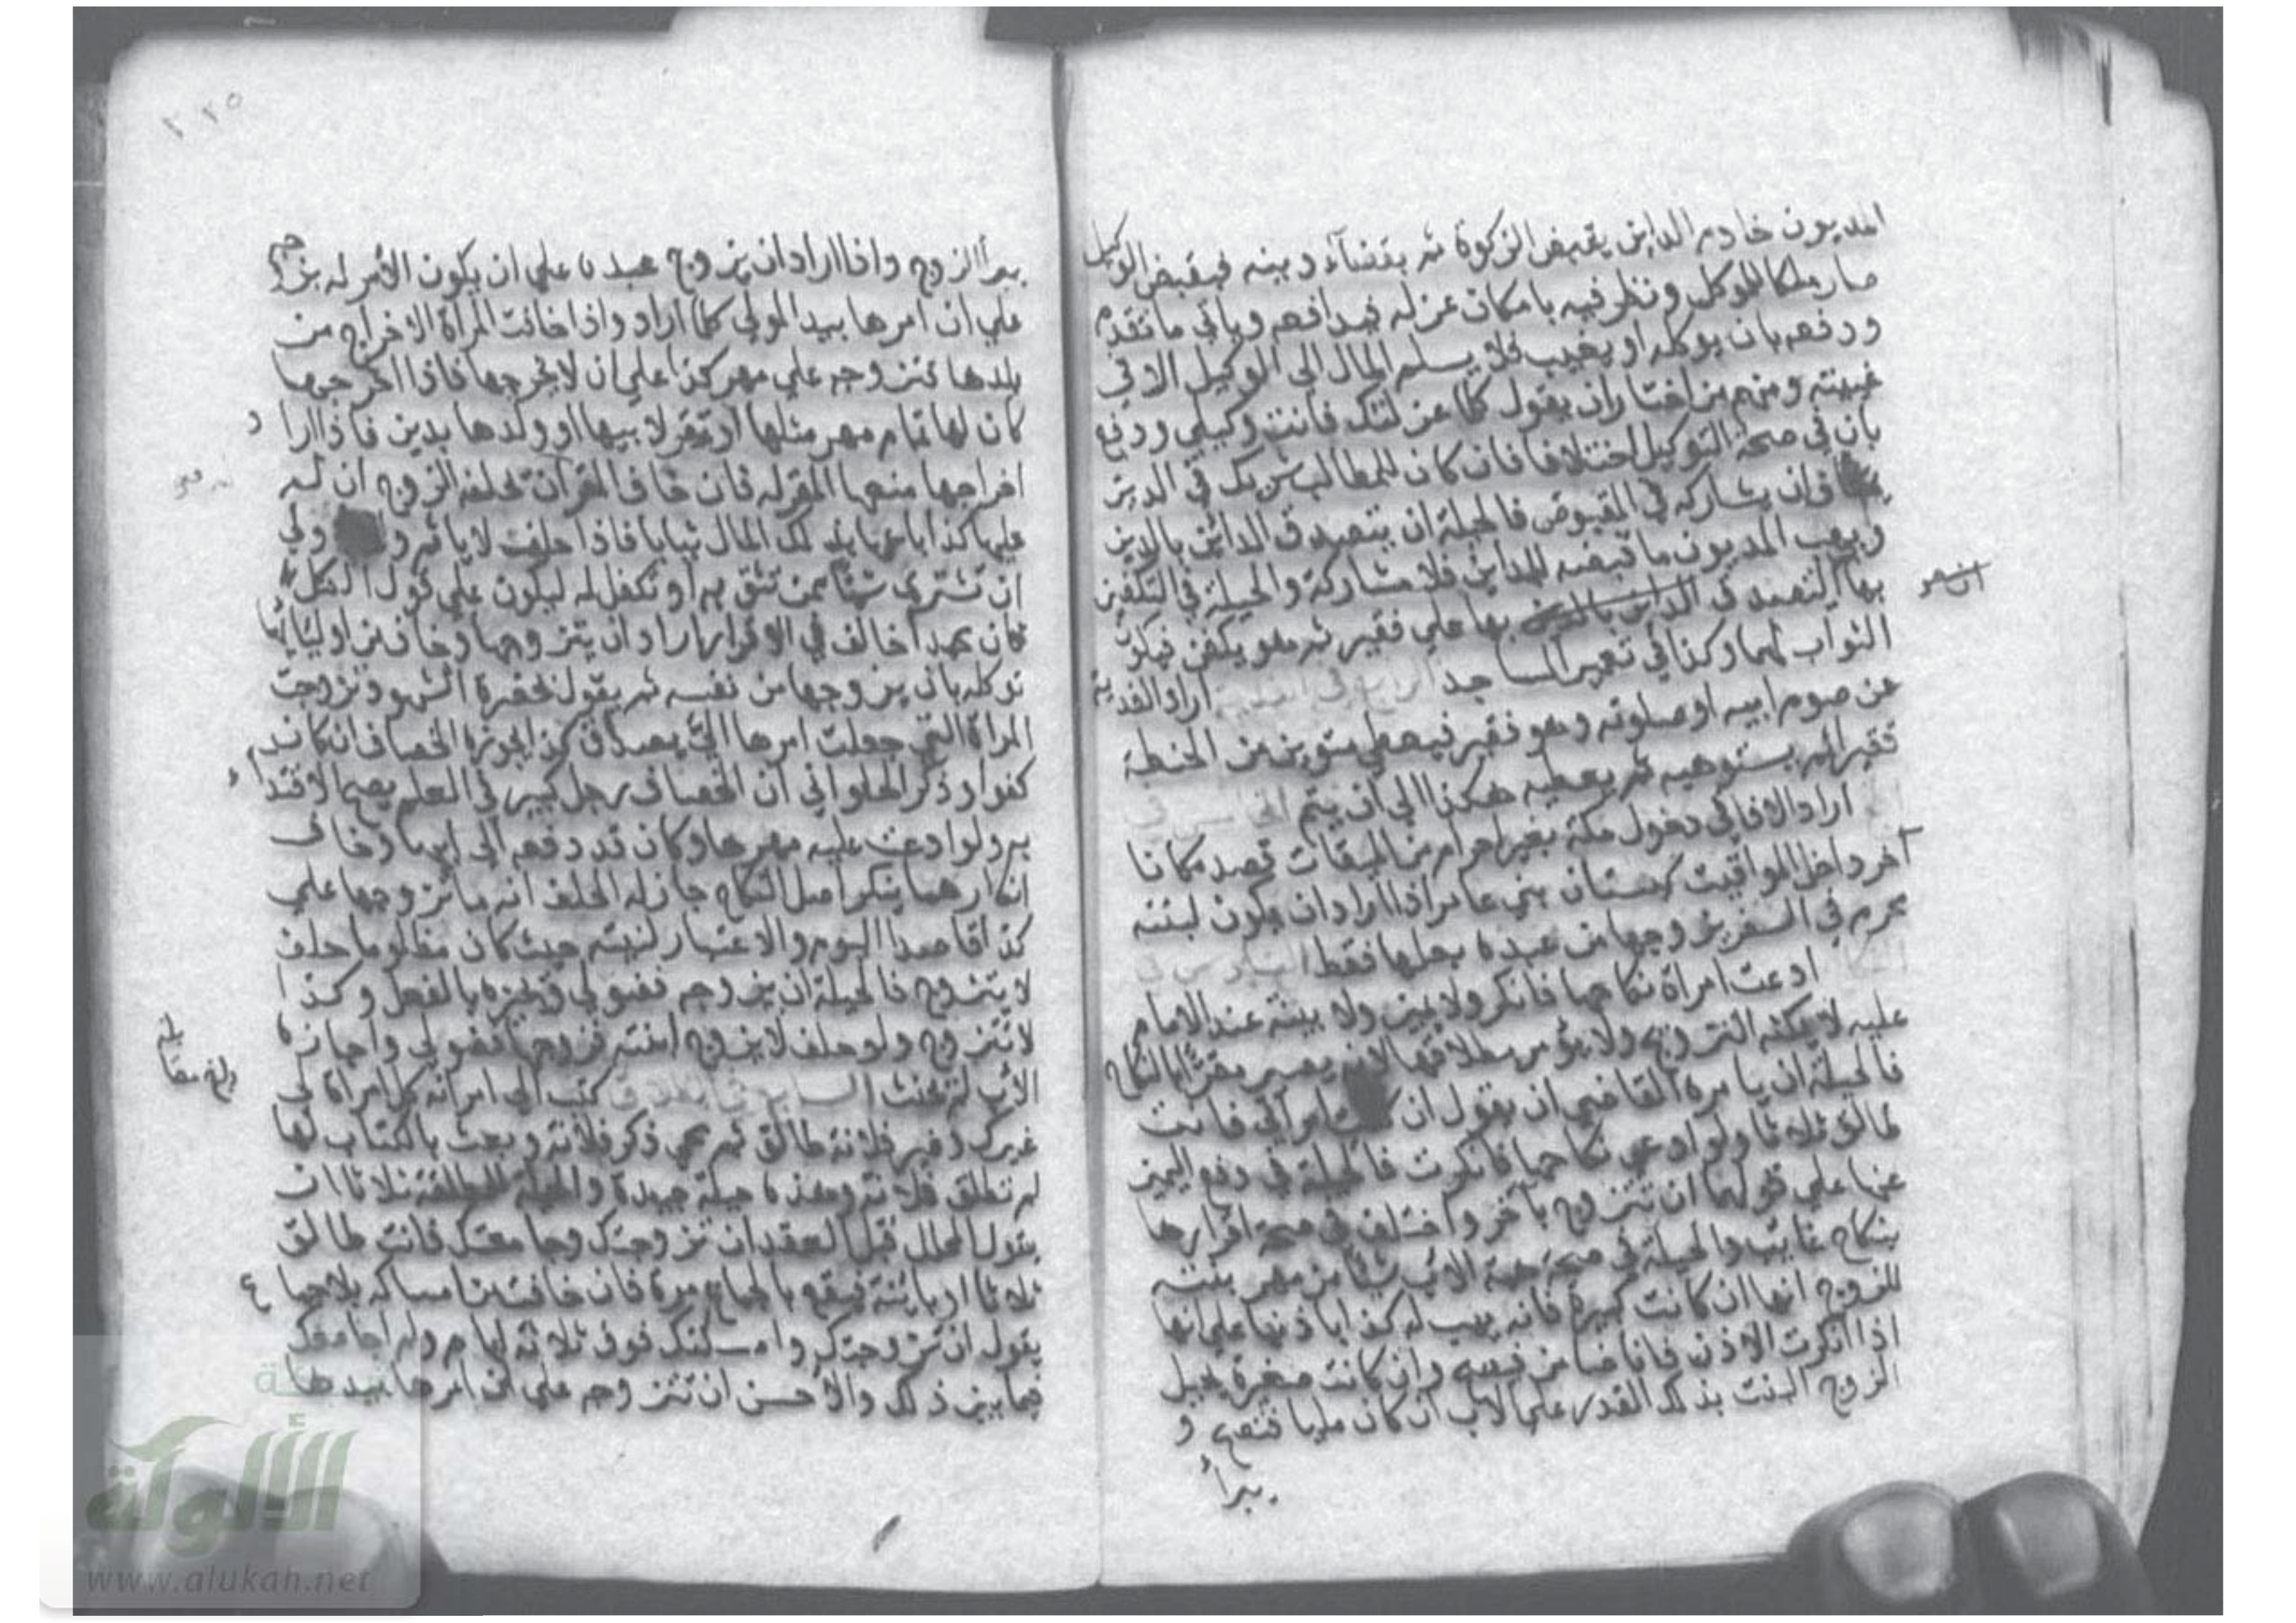 المديون خادم الداين يقبض الزكوة ثم بقضآء دينه فبقبض الوكيل
صار ملكا للموكل ونظر فيه بامكان عزله فيدافعه وياتي ما تقدم
ودفعه بان يوكله او يغيب فلا يسلم المال الى الوكيل الا في
غيبته ومنهم من اختار ان يقول كلما عزلتك فانت وكيلي ودفع
بان في صحة التوكيل اختلافا فان كان للمطالب شريك في الدين
فان يشاركه في المقبوض فالحيلة ان يتصدق الداين بالدين
ويهب المديون ما قبضه للداين فلا مشاركة والحيلة في التكفين
بها التصدق بها على فقير ثم هو يكفن فيكون
الثواب لهما وكذا في تعمير المساجد الرابع في الفدية اراد الفدية
عن صوم ابيه او صلوته وهو فقير فيعطي منوين من الحنطة
فقيرا ثم يستوهبه ثم يعطيه هكذا الى ان يتم الخامس في
اراد الافاقي دخول مكة بغير احرام من الميقات قصد مكانا
آخر داخل المواقيت كبستان بني عامر اذا اراد ان يكون لبنته
محرم في السفر يزوجها من عبده بعلمها فقط السادس في
ادعت امراة نكاحها فانكر ولا يمين ولا بينة عند الامام
عليه لا يمكنه التزوج ولا يؤمر بطلاقها لانه يصير مقرا بالنكاح
فالحيلة ان يامره القاضي ان يقول ان كنت امراتي فانت
طالق ثلاثا ولو ادعى نكاحها فانكرت فالحيلة في دفع اليمين
عنها على قولهما ان تتزوج بآخر واختلف في صحة اقرارها
بنكاح غايب والحيلة في صحة هبة الاب شيئا من مهر بنته
للزوج انها ان كانت كبيرة فانه يهب له كذا باذنها على انها
اذا انكرت الاذن فانا ضامن فيصح وان كانت صغيرة يحيل
الزوج البنت بذلك القدر على الاب ان كان مليا فتصح و
يبرأ
يبرأ الزوج واذا اراد ان يزوج عبده على ان يكون الأمر له يزوجه
على ان امرها بيد المولى كلما اراد واذا خافت المرأة الاخراج من
بلدها تتزوجه على مهر كذا على ان لا يخرجها فاذا اخرجها
كان لها تمام مهر مثلها او تقر لابيها او ولدها بدين فاذا اراد
اخراجها منعها المقر له فان خاف المقر ان تحلفه الزوج ان له
عليها كذا باعها بذلك المال ثيابا فاذا حلف لا ياثم و ولى
ان تشتري شيئا ممن تثق به او تكفل له ليكون على قول الكل
فان محمدا خالف في الاقرار اراد ان يتزوجها وخاف من اوليائها
توكله بان يزوجها من نفسه ثم يقول بحضرة الشهود تزوجت
المراة التي جعلت امرها الي بصداق كذا جوزه الخصاف ان كان
كفوا وذكر الحلواني ان الخصاف رجل كبير في العلم يصح الاقتداء
به ولو ادعت عليه مهرها وكان قد دفعه الى ابيها وخاف
انكارهما ينكر اصل النكاح جاز له الحلف انه ما تزوجها على
كذا قاصدا اليوم والاعتبار لنيته حيث كان مظلوما حلف
لا يتزوج فالحيلة ان يزوجه فضولي ويجيزه بالفعل وكذا
لا تتزوج ولو حلف لا يزوج ابنته فزوجها فضولي واجازه
الأب لم يحنث السابع في الطلاق كتب الى امراته كل امراة لي
غيرك وغير فلانة طالق ثم محى ذكر فلانة وبعث بالكتاب لها
لم تطلق فلانة وهذه حيلة جيدة والحيلة للمطلقة ثلاثا ان
يقول المحلل قبل العقد ان تزوجتك وجامعتك فانت طالق
ثلاثا او باينة فيقع بالجماع مرة فان خافت من امساكه بلا جماع
يقول ان تزوجتك وامسكتك فوق ثلاثة ايام ولم اجامعك
فيما بين ذلك والأحسن ان تتزوجه على ان امرها بيدها
بلغ مقابلة
www.alukah.net